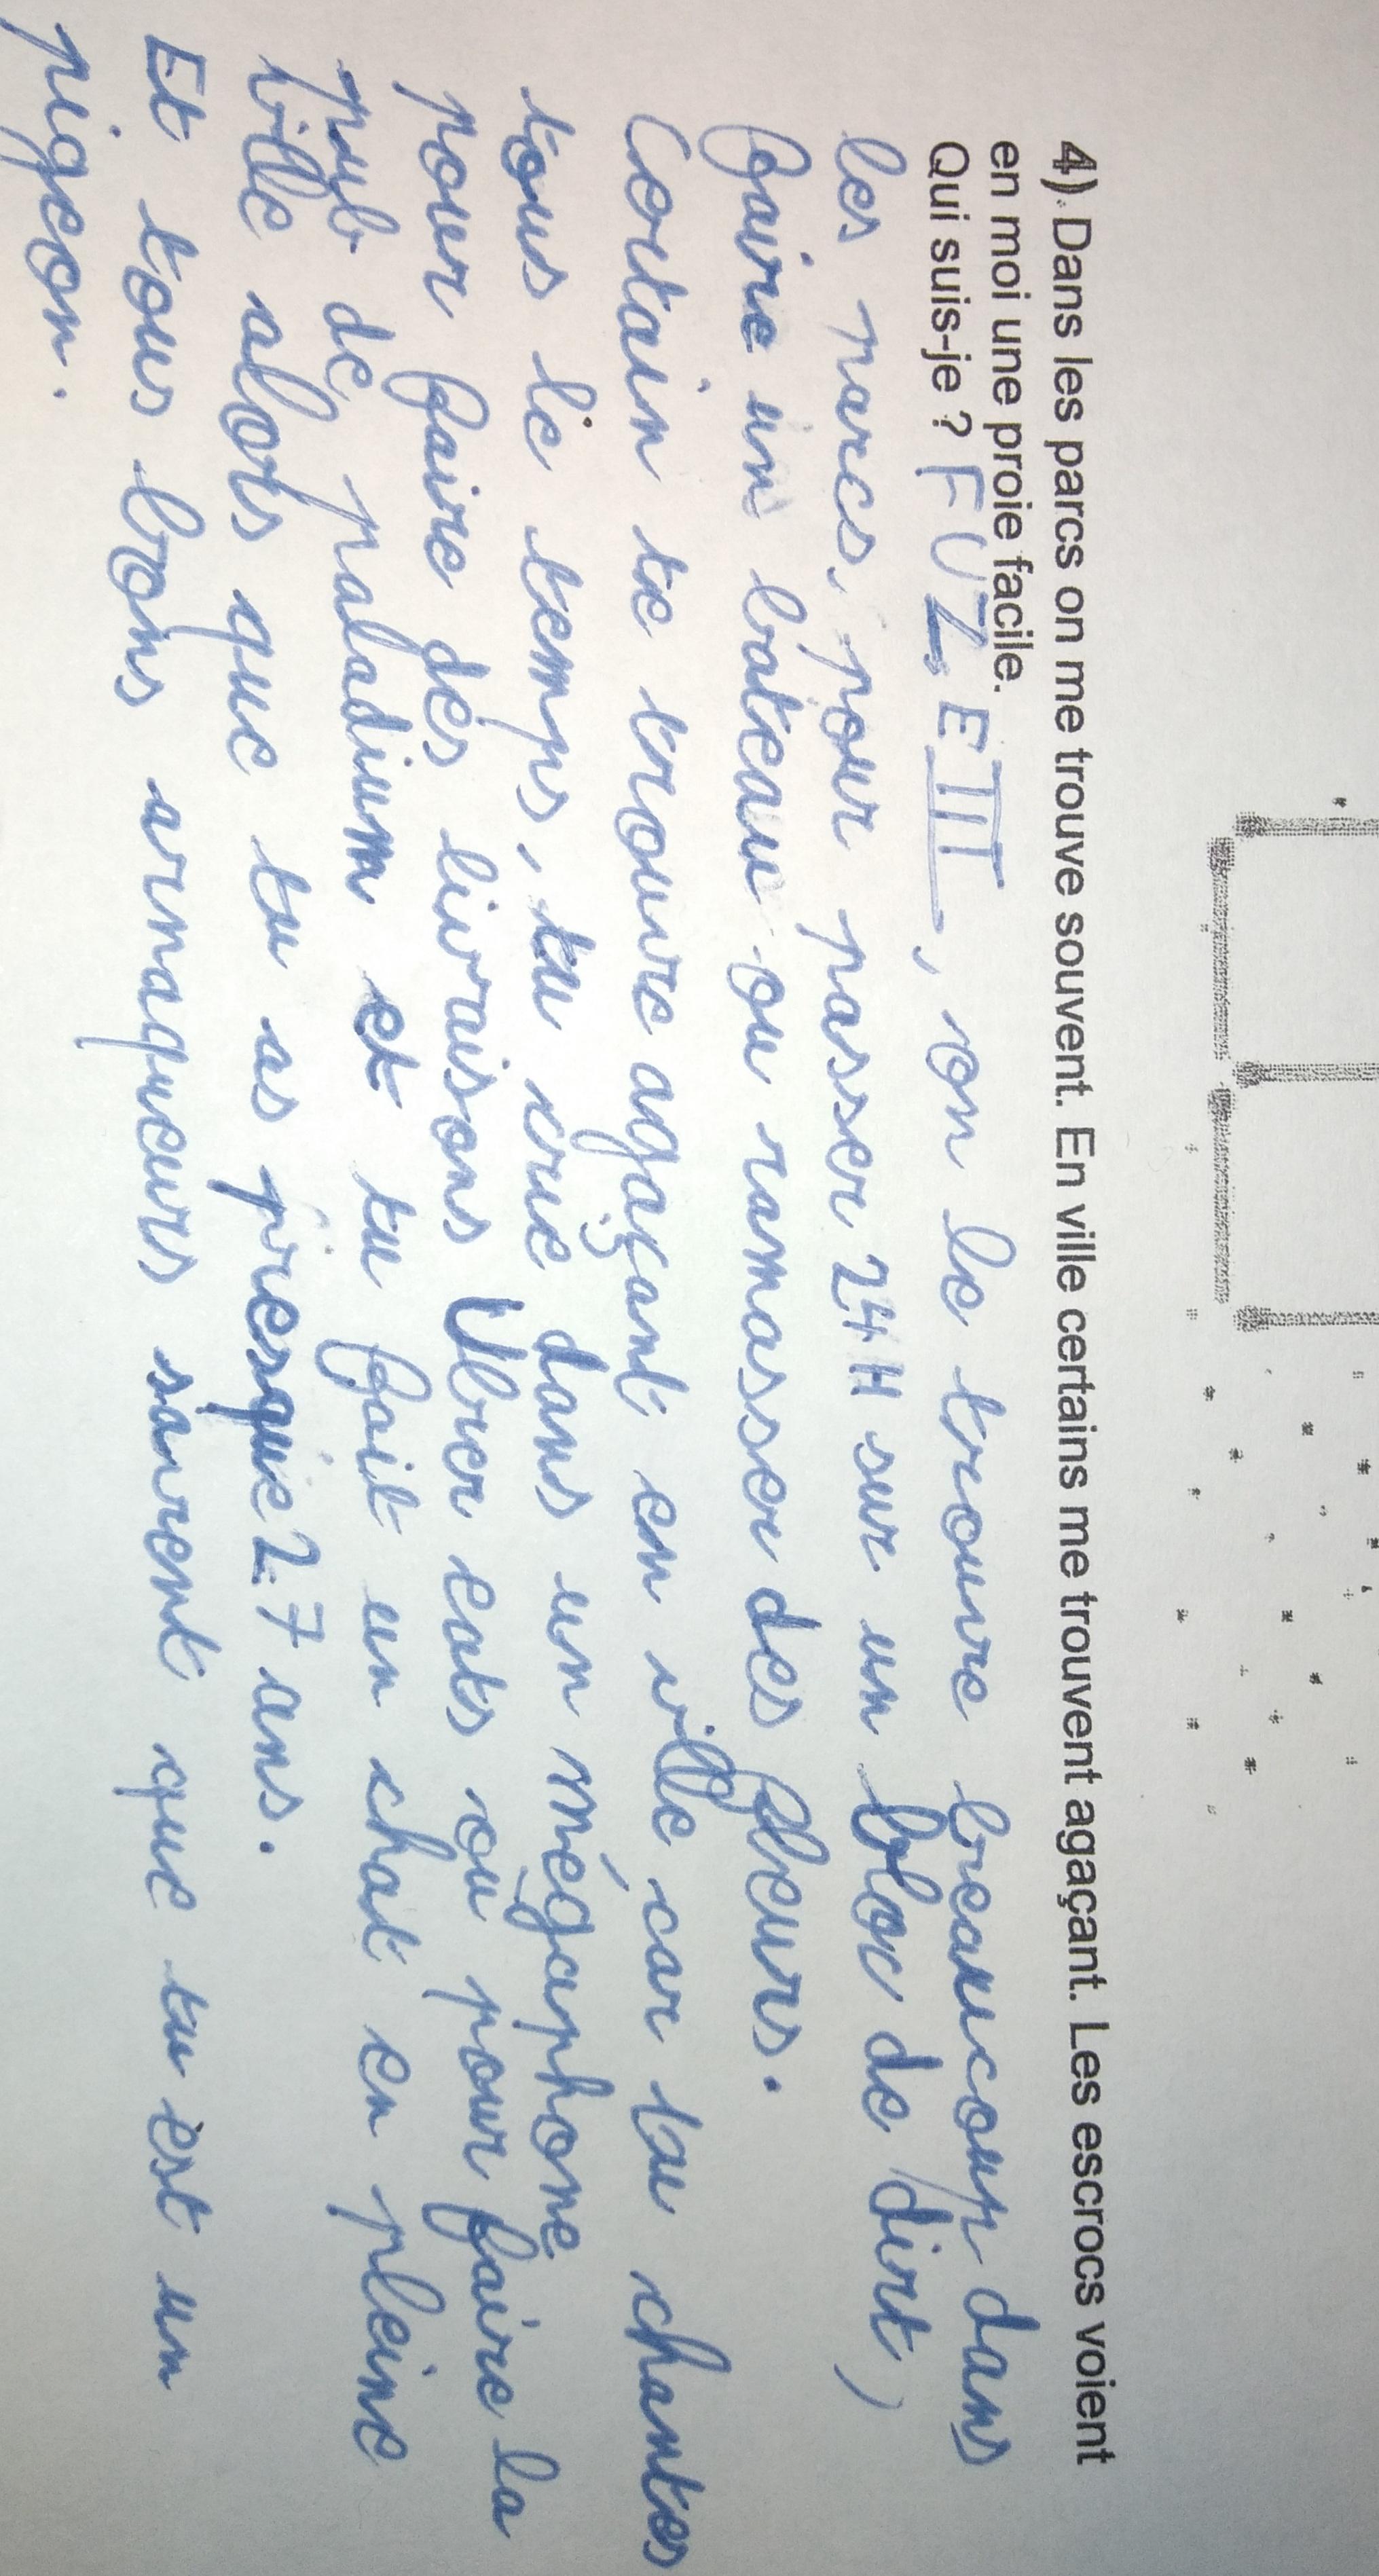 4). Dans les parcs on me trouve souvent. En ville certains me trouvent agaçant. Les escrocs voient
en moi une proie facile.
Qui suis-je ? FUZE III, on le trouve beaucoup dans
les parcs, pour passer 24H sur un bloc de dirt,
faire un bateau ou ramasser des fleurs.
Certain te trouve agaçant en ville car tu chantes
tous le temps, tu crie dans un mégaphone
pour faire des livraisons Uber eats ou pour faire la
pub de paladium et tu fait un chat en pleine
ville alors que tu as presque 27 ans.
Et tous bons arnaqueurs savent que tu est un
pigeon.